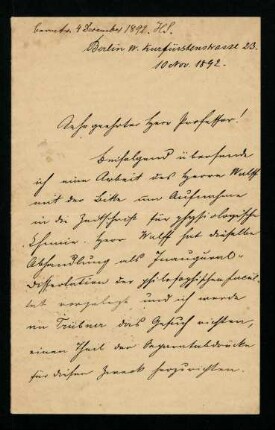 4 Dezember 1892. H.S.
Berlin W. Kurfürstenstrasse 23.
10 Nov. 1892.
Sehr geehrter Herr Professor!
Beifolgend übersende
ich eine Arbeit des Herrn Wulff
mit der Bitte um Aufnahme
in die Zeitschrift für physiologische
Chemie. Herr Wulff hat dieselbe
Abhandlung als Inaugural-
Dissertation der philosophischen Facul-
tät vorgelegt und ich werde
an Trübner das Gesuch richten,
einen Theil der Separatabdrücke
für diesen Zweck herzurichten.